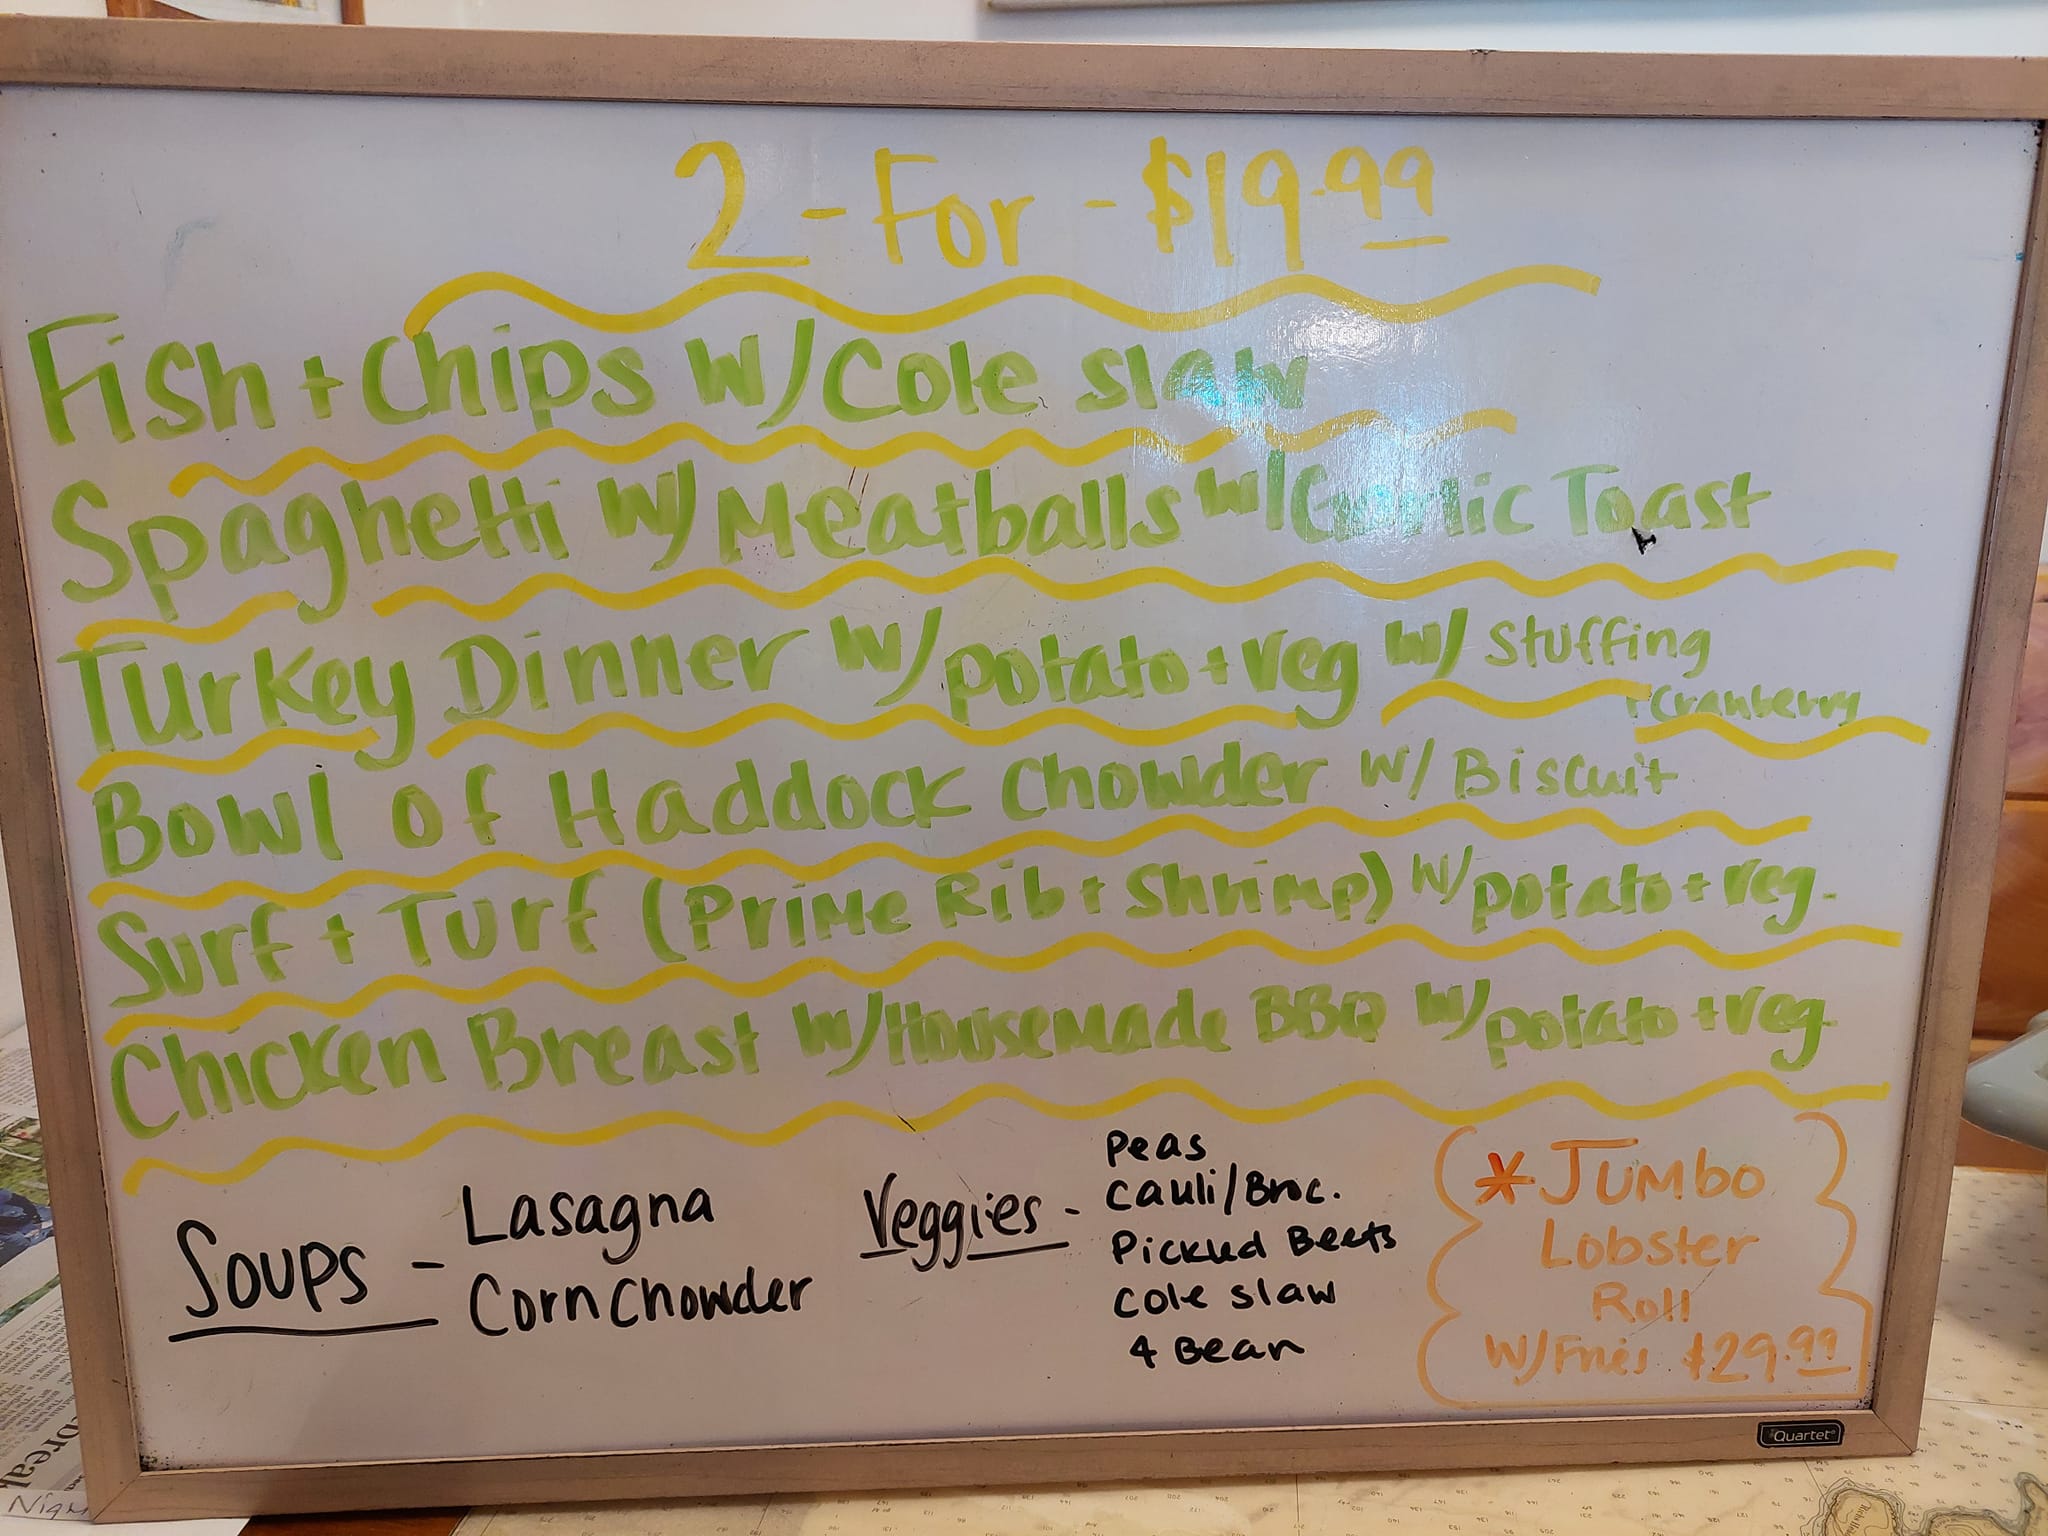 2 - For - $19.99
Fish + Chips w/ Cole slaw
Spaghetti w/ Meatballs w/ Garlic Toast
Turkey Dinner w/ potato + veg w/ stuffing
+ Cranberry
Bowl of Haddock Chowder w/ Biscuit
Surf + Turf (Prime Rib + Shrimp) w/ potato + veg.
Chicken Breast w/ Housemade BBQ w/ potato + veg.
Soups - Lasagna
Corn Chowder
Veggies - Peas
Cauli/Broc.
Pickled Beets
Cole slaw
4 Bean
* Jumbo
Lobster
Roll
w/ Fries $29.99
Quartet